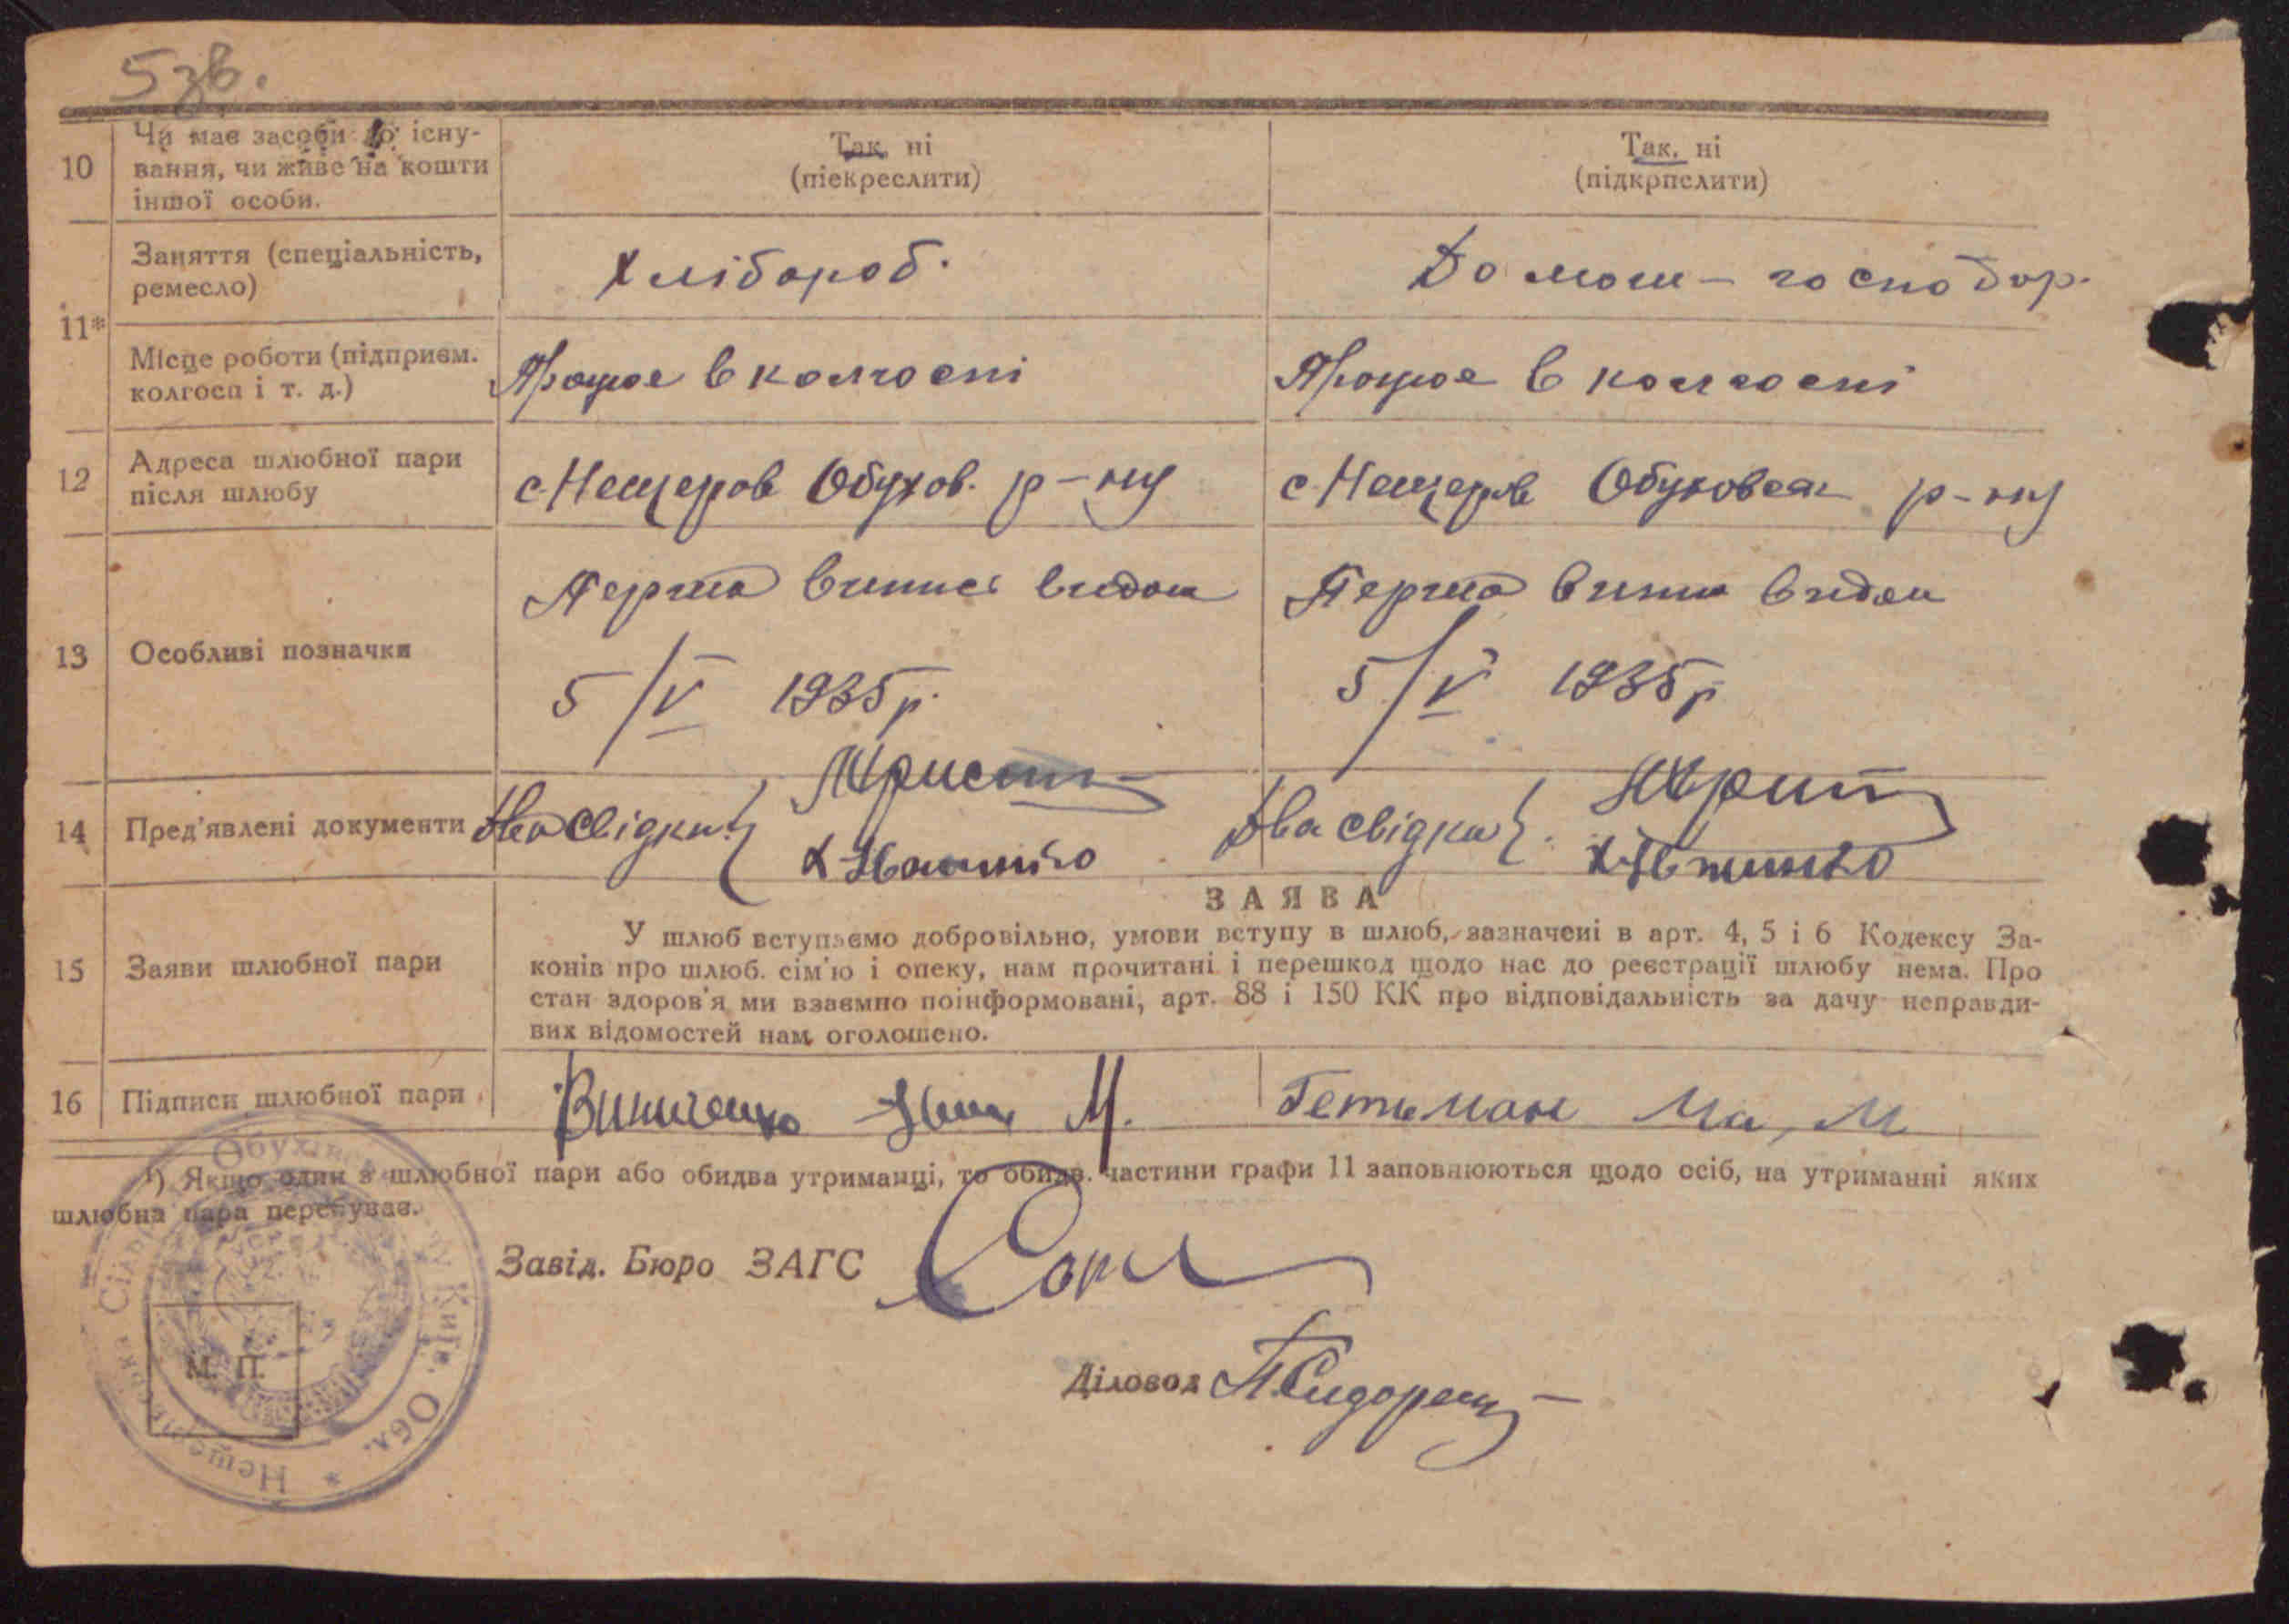 5 зв.
10
Чи має засоби до існу-
вання, чи живе на кошти
іншої особи.
Так, ні
(піекреслити)
Так, ні
(підкрпслити)
11*
Заняття (спеціальність,
ремесло)
Хлібороб.
Домош-господар.
Місце роботи (підприєм.
колгосп і т. д.)
Працює в колгоспі
Працює в колгоспі
12
Адреса шлюбної пари
після шлюбу
с. Нещеров Обухов. р-ну
с. Нещеров Обуховськ р-ну
13
Особливі позначки
Перша випись видан
Перша випис видан
5/V 1935 р.
5/V 1935 р
14
Пред'явлені документи
Два свідки
Два свідки
15
Заяви шлюбної пари
ЗАЯВА
У шлюб вступаємо добровільно, умови вступу в шлюб, зазначені в арт. 4, 5 і 6 Кодексу За-
конів про шлюб. сім'ю і опеку, нам прочитані і перешкод щодо нас до реєстрації шлюбу нема. Про
стан здоров'я ми взаємно поінформовані, арт. 88 і 150 КК про відповідальність за дачу неправди-
вих відомостей нам оголошено.
16
Підписи шлюбної пари
Виниченко М.
Гетьман Ма, М
¹) Якщо один з шлюбної пари або обидва утриманці, то обидв. частини графи 11 заповнюються щодо осіб, на утриманні яких
шлюбна пара перебуває.
Завід. Бюро ЗАГС
М. П.
Діловод П. Сидорен
Нещерівська Сільр Обухівськ Київ. Обл. *